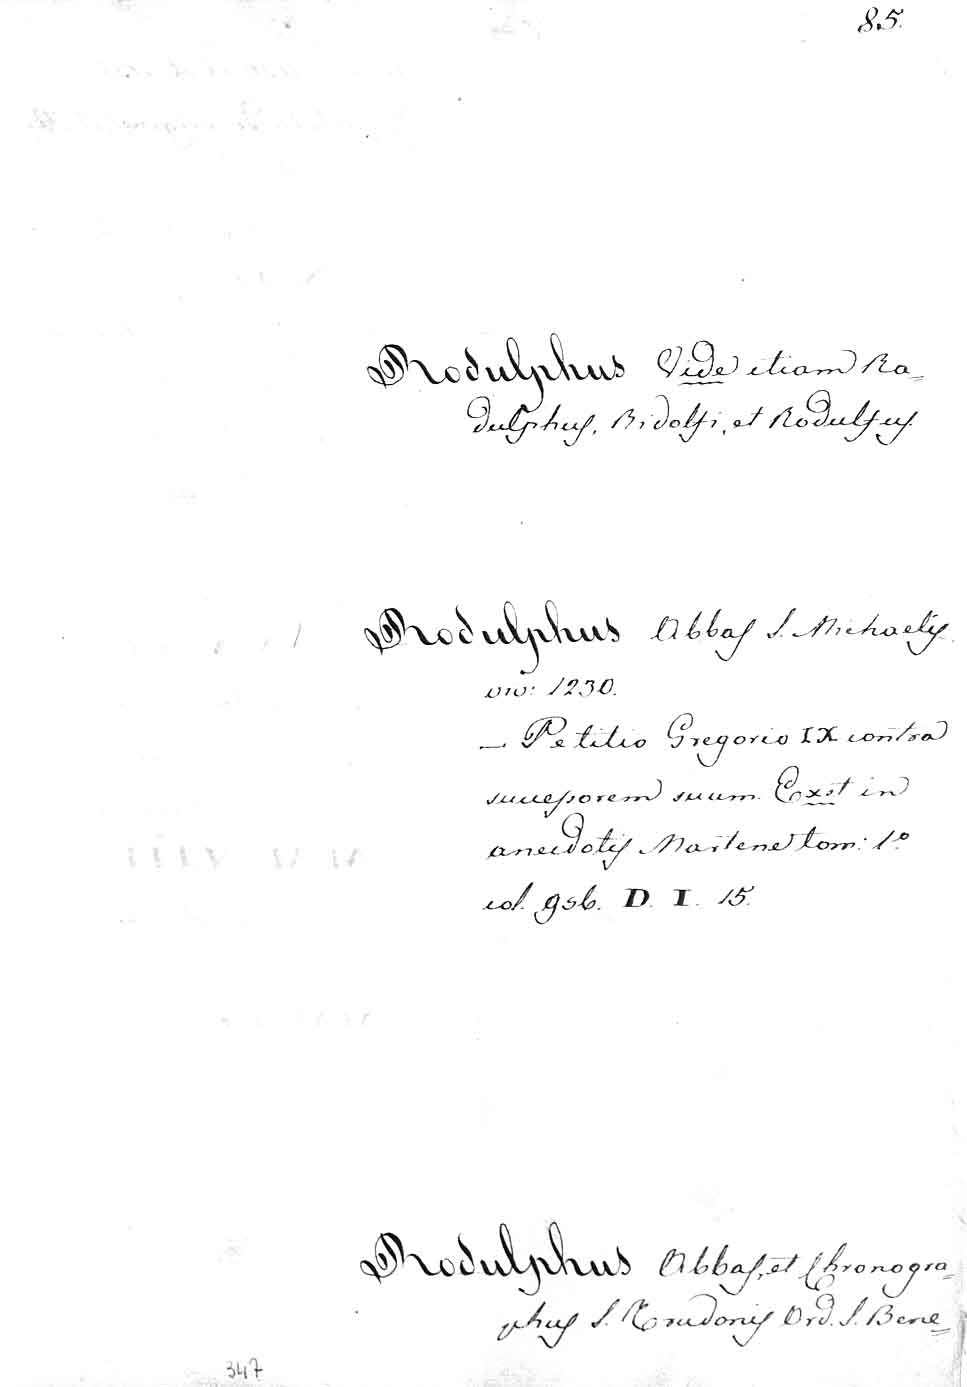 85.
Rodulphus Vide etiam Ra=
dulphus, Ridolfi, et Rodulfus.
Rodulphus Abbas S. Michaelis
viv: 1230.
— Petitio Gregorio IX contra
successorem suum. Exst in
anecdotis Martene tom: 1.º
col. 956. D. I. 15.
Rodulphus Abbas, et Chronogra=
phus S. Trudonis Ord. S. Bene=
347